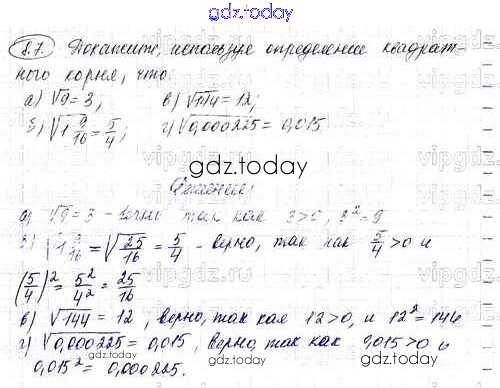 gdz.today
8.7. Докажите, используя определение квадрат-
ного корня, что:
а) √9 = 3;   в) √144 = 12;
б) √1 9/16 = 5/4;   г) √0,000225 = 0,015
gdz.today
Решение
а) √9 = 3 - верно так как 3>0, 3² = 9
б) √1 9/16 = √25/16 = 5/4 - верно, так как 5/4 > 0 и
(5/4)² = 5²/4² = 25/16
в) √144 = 12, верно, так как 12>0, и 12² = 144
г) √0,000225 = 0,015, верно, так как 0,015>0 и
0,015² = 0,000225.
gdz.today